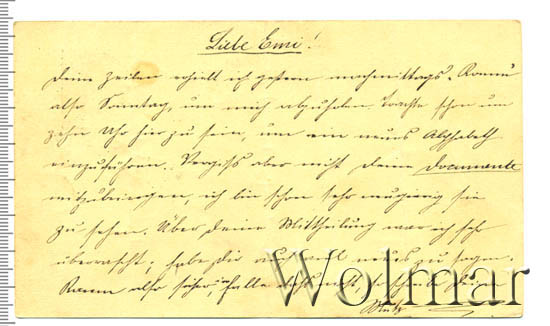 Liebe Emi!
Deine Zeilen erhielt ich gestern nachmittags. Komme
also Sonntag, um mich abzuholen. Trachte schon um
zehn Uhr hier zu sein, um ein neues Alphabeth
einzuführen. Vergiss aber nicht Deine Documente
mitzubringen, ich bin schon sehr neugierig sie
zu sehen. Über Deine Mittheilung war ich sehr
überrascht; habe Dir auch viel neues zu sagen.
Komm also sicher, im Falle
Wolmar